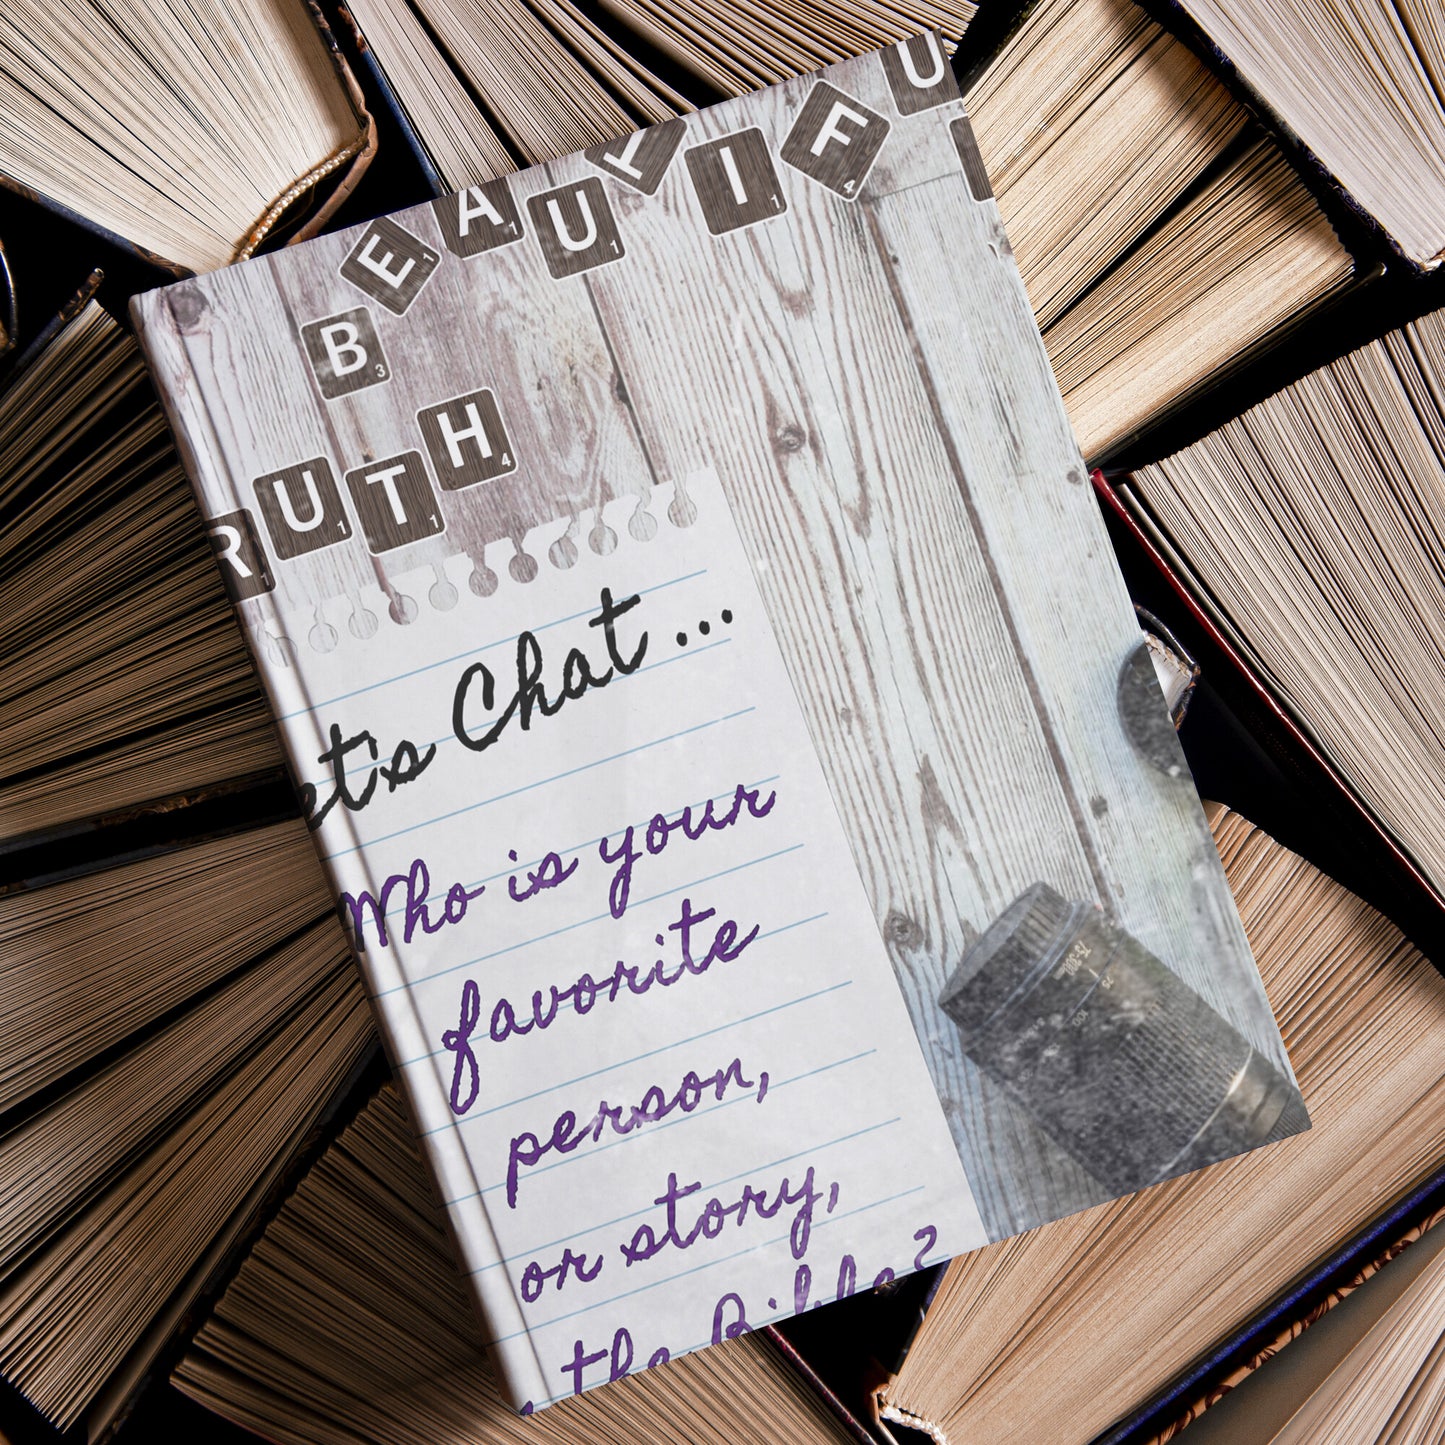 BEAUTIFU
RUTH
et's Chat ...
Who is your
favorite
person,
or story,
the Bible?
75-300